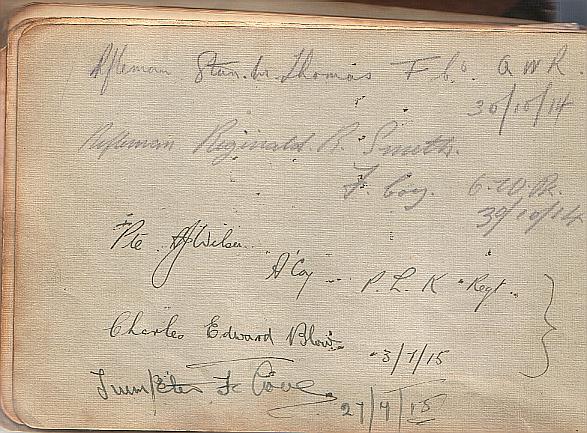 Rifleman Stan. W. Thomas F Co. Q W R
30/10/14
Rifleman Reginald. R. Smith.
F. Coy. Q.W.R.
30/10/14
Pte AJ Wilson
A Coy P. L. K Regt.
Charles Edward Blow 3/7/15
Trumpeter F. Cove
27/9/15